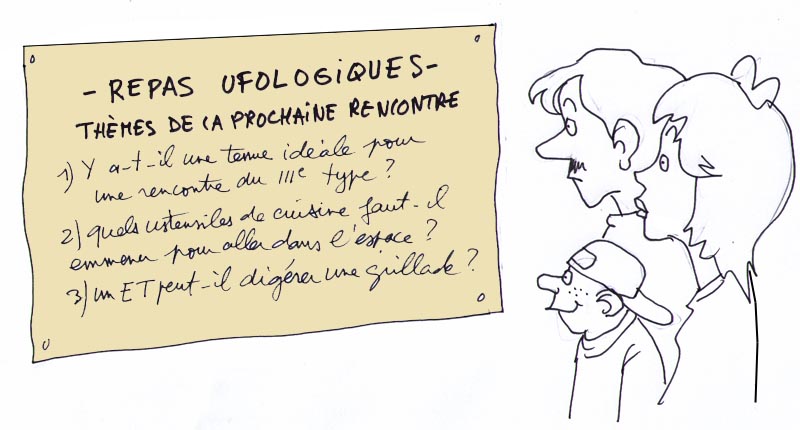 - REPAS UFOLOGIQUES -
THÈMES DE LA PROCHAINE RENCONTRE
1) Y a-t-il une tenue idéale pour
une rencontre du IIIe type ?
2) quels ustensiles de cuisine faut-il
emmener pour aller dans l'espace ?
3) un ET peut-il digérer une grillade ?